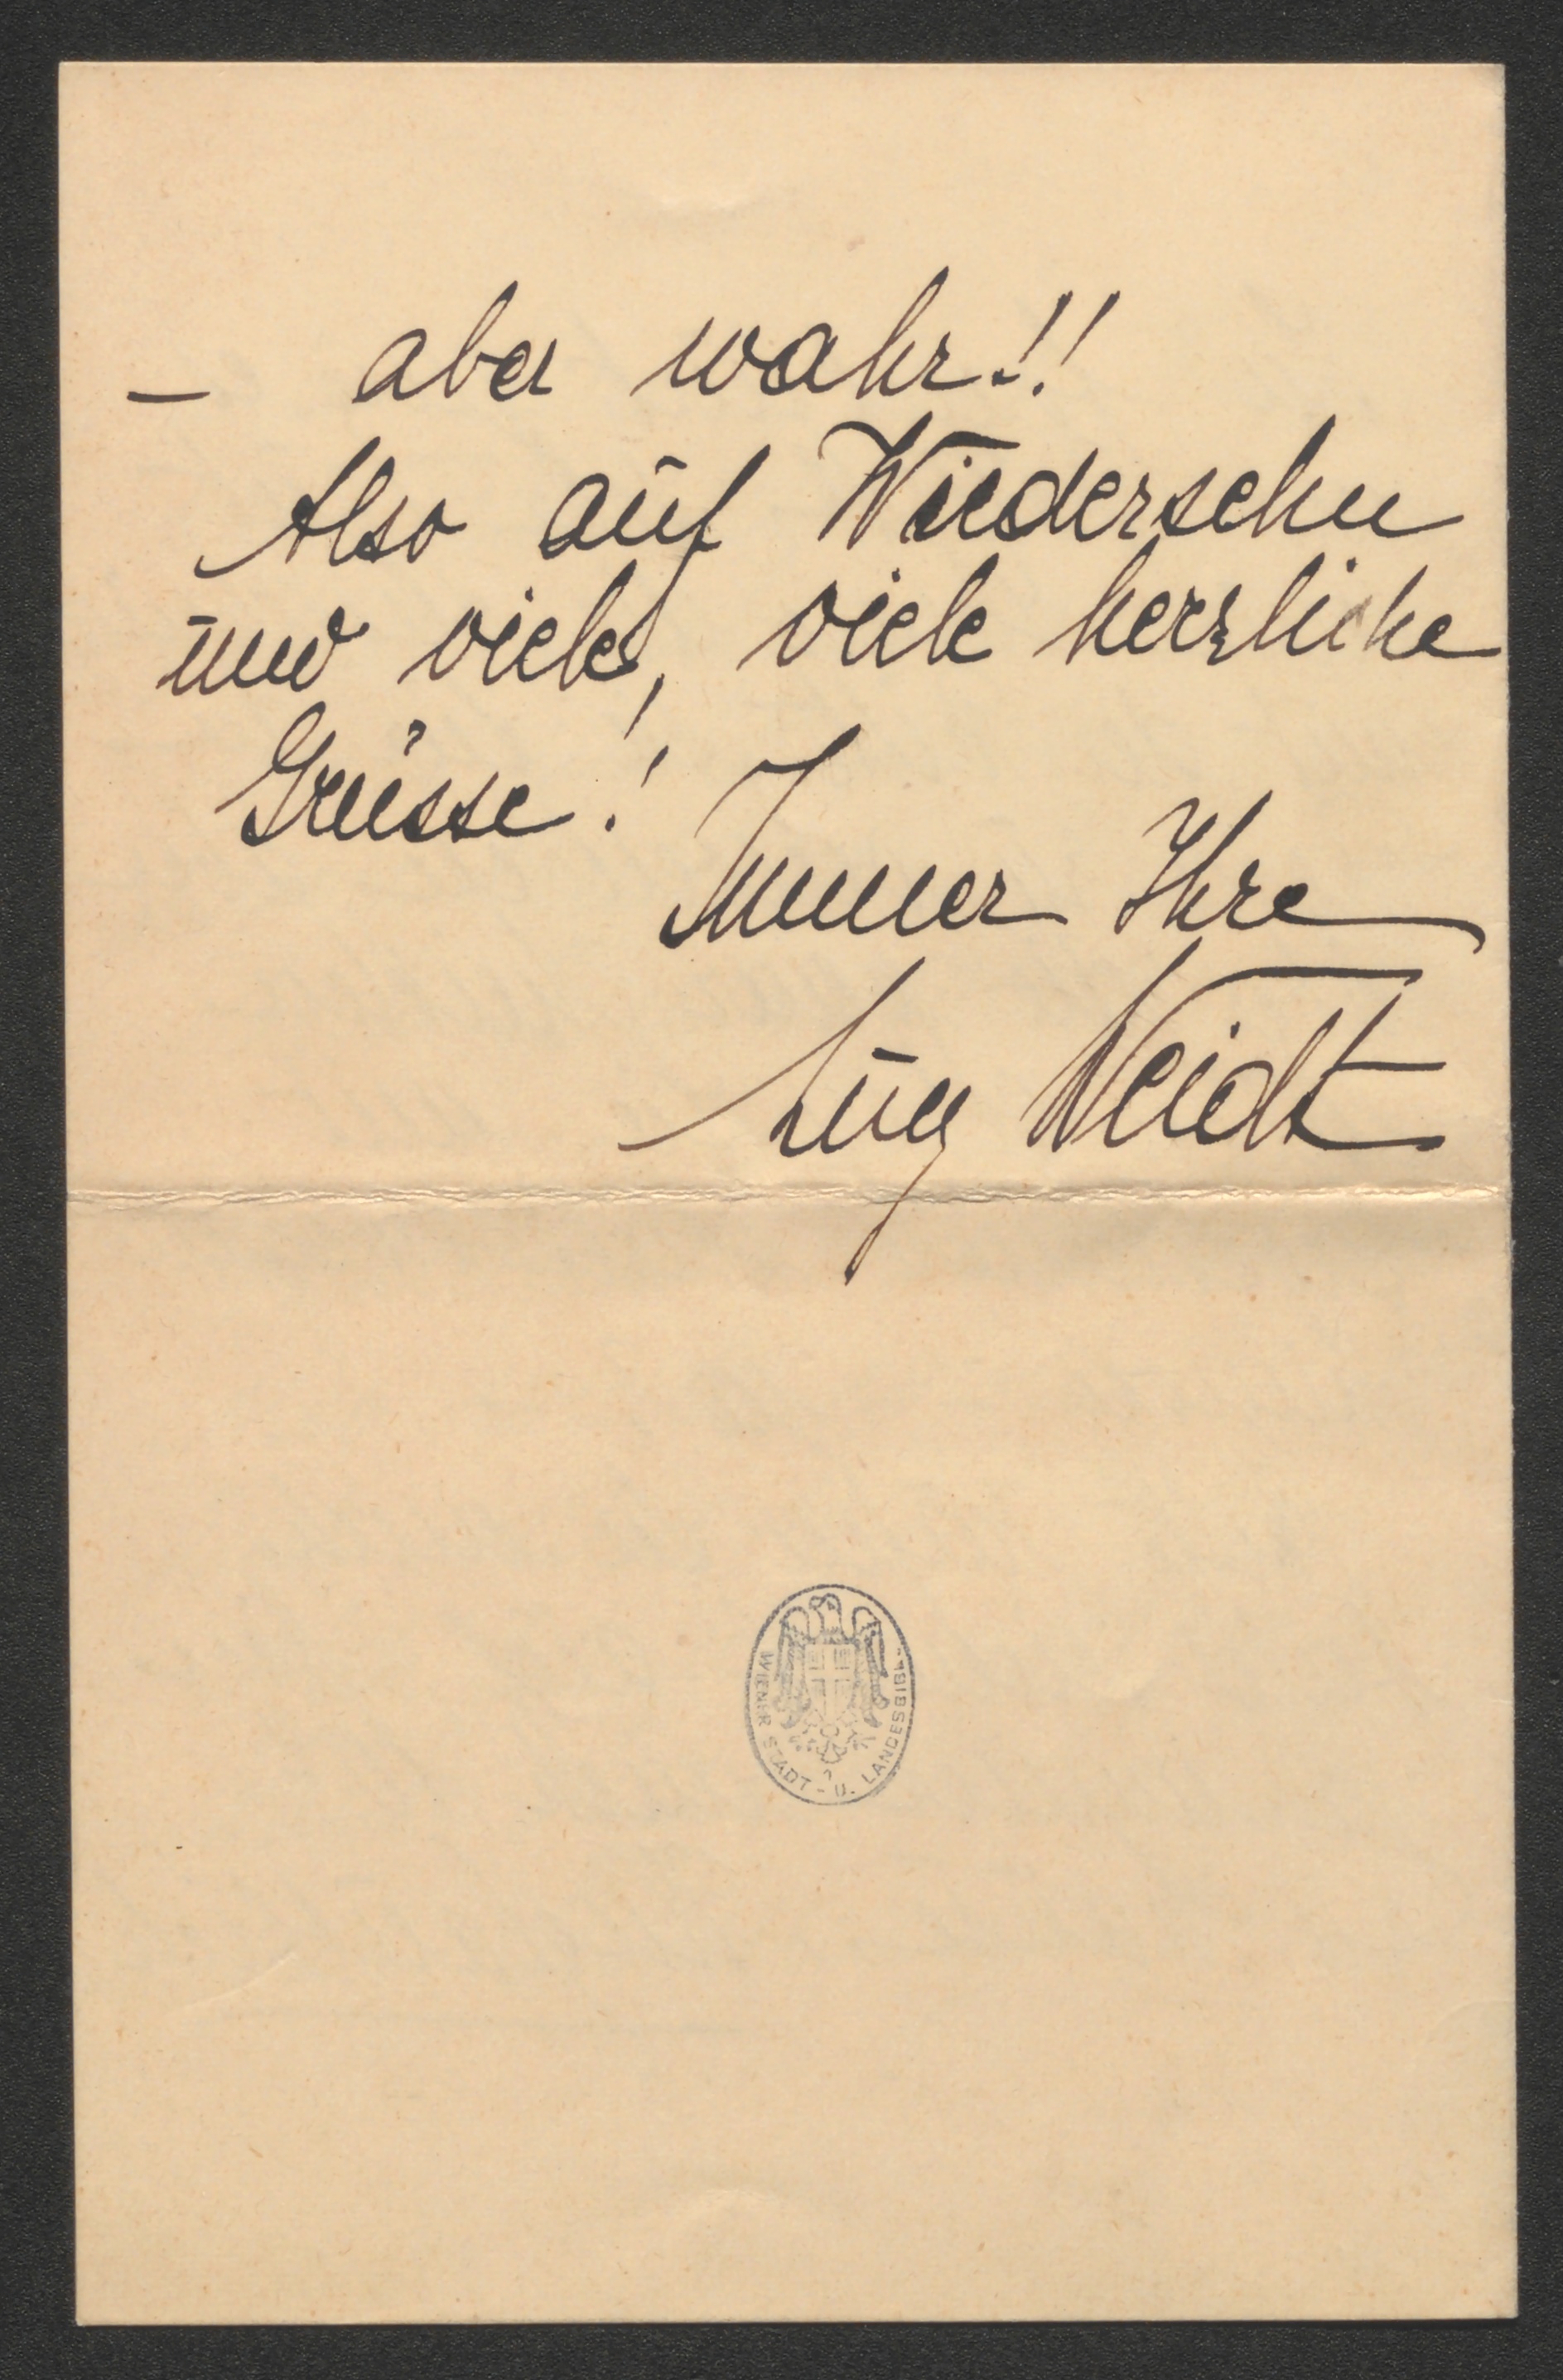 – aber wahr!!
Also auf Wiedersehn
und viele, viele herzliche
Grüsse!
Immer Ihre
Lucy Weidt
WIENER STADT - U. LANDESBIBL.